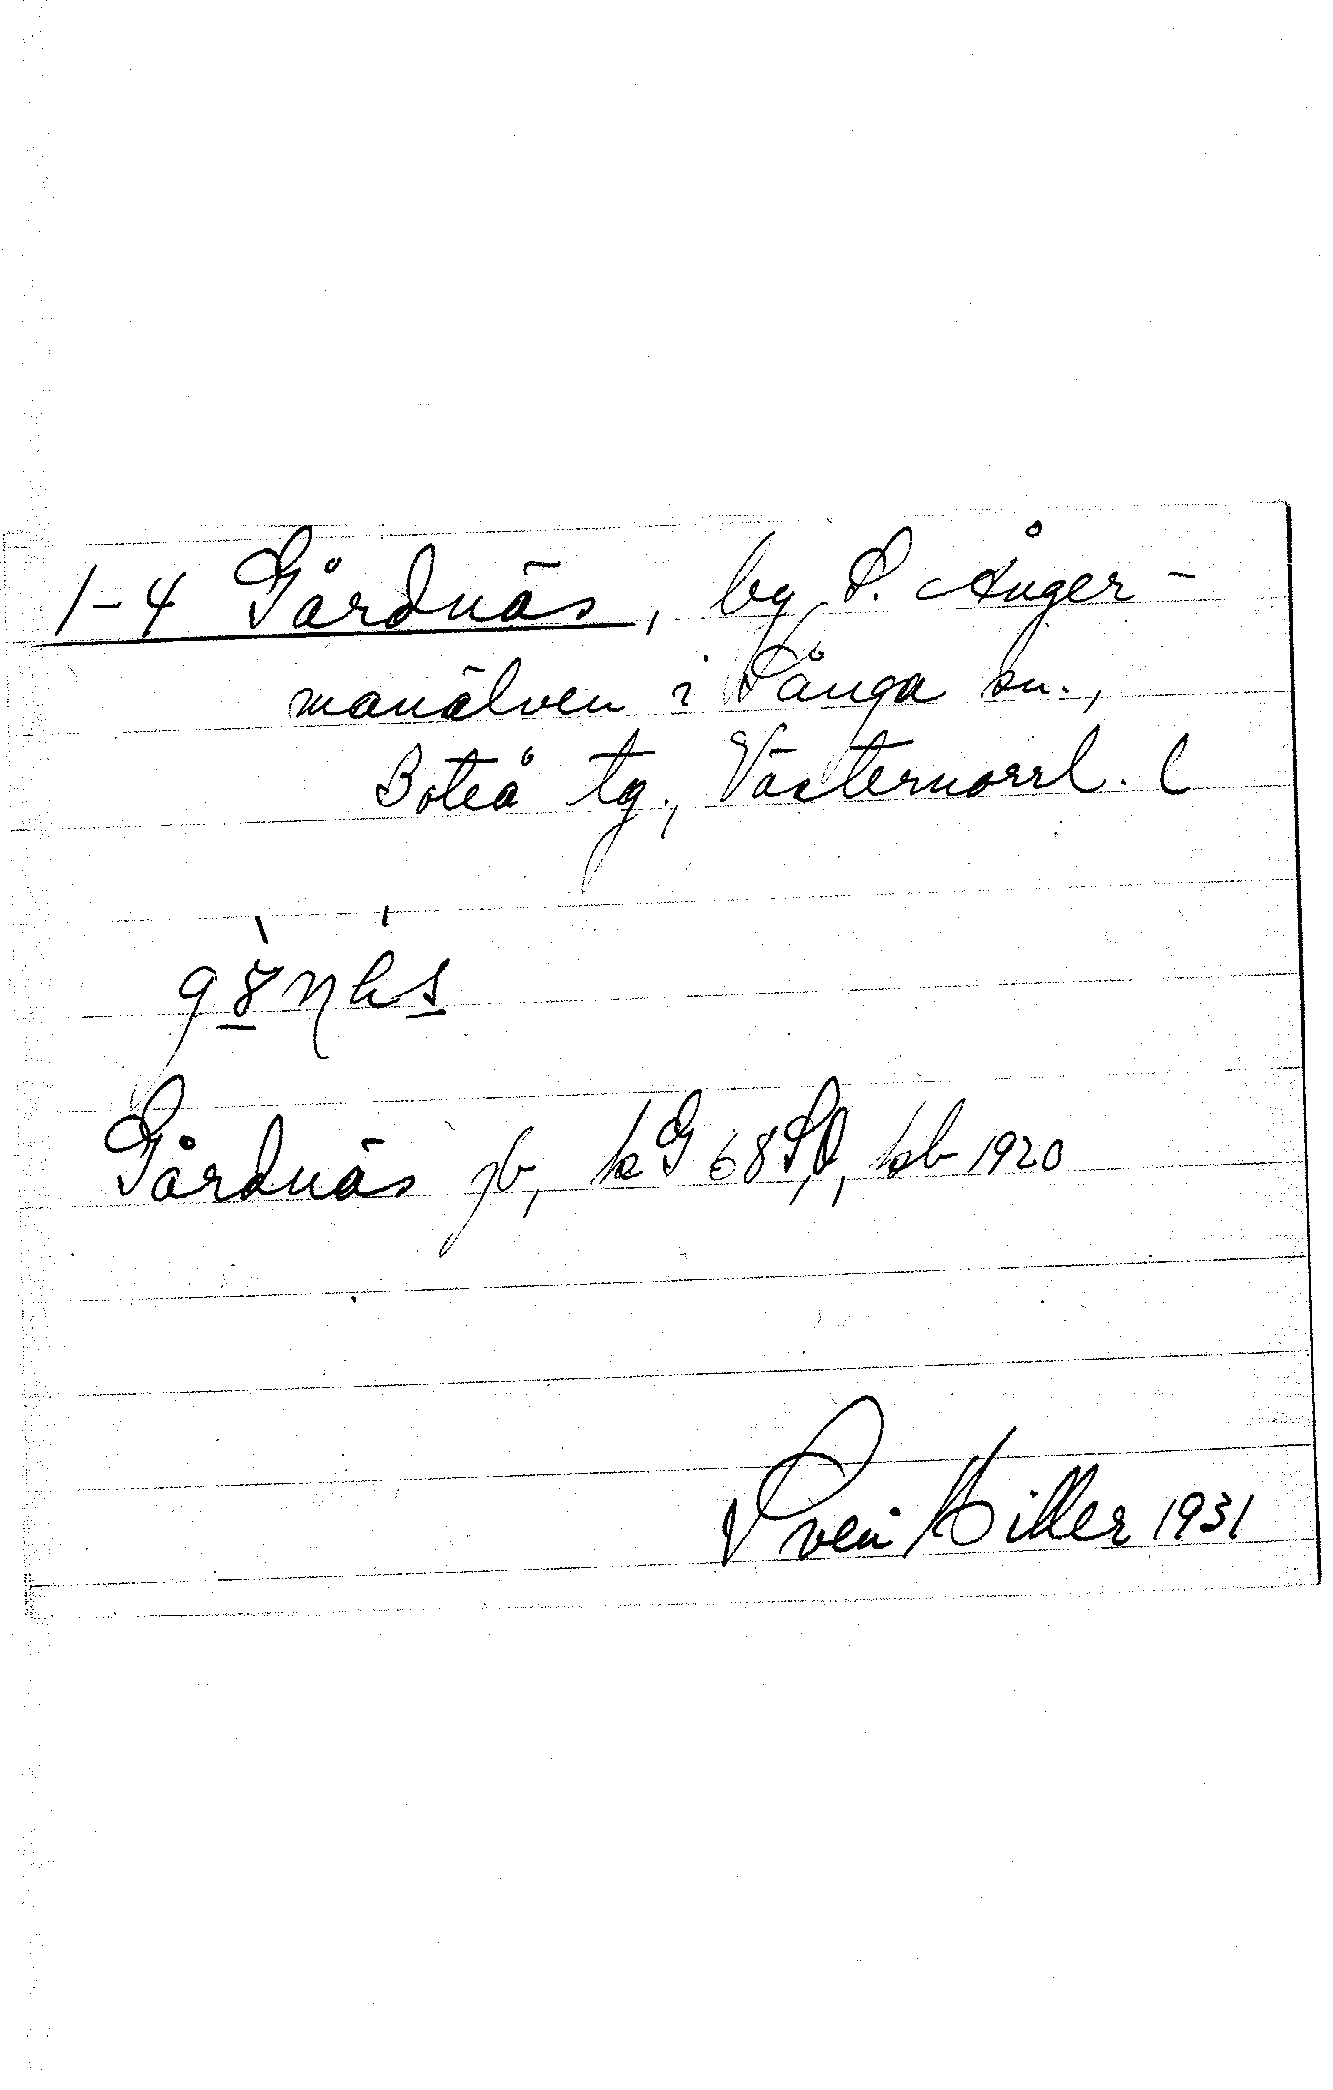 1-4 Gårdnäs, by S. Ånger-
manälven i Sånga sn.,
Boteå tg., Västernorrl. l
Gårdnäs jb, kG 68 SO, kb 1920
Sven Hiller 1931